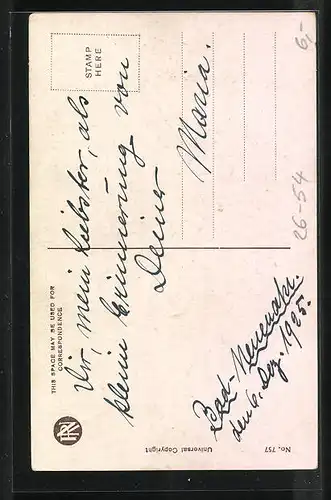 THIS SPACE MAY BE USED FOR
CORRESPONDENCE
STAMP
HERE
Dir, mein Liebster, als
kleine Erinnerung von
Deiner
Maria.
Bad-Neuenahr.
den 6. Dez. 1925.
No. 757
Universal Copyright
26-54
6,-